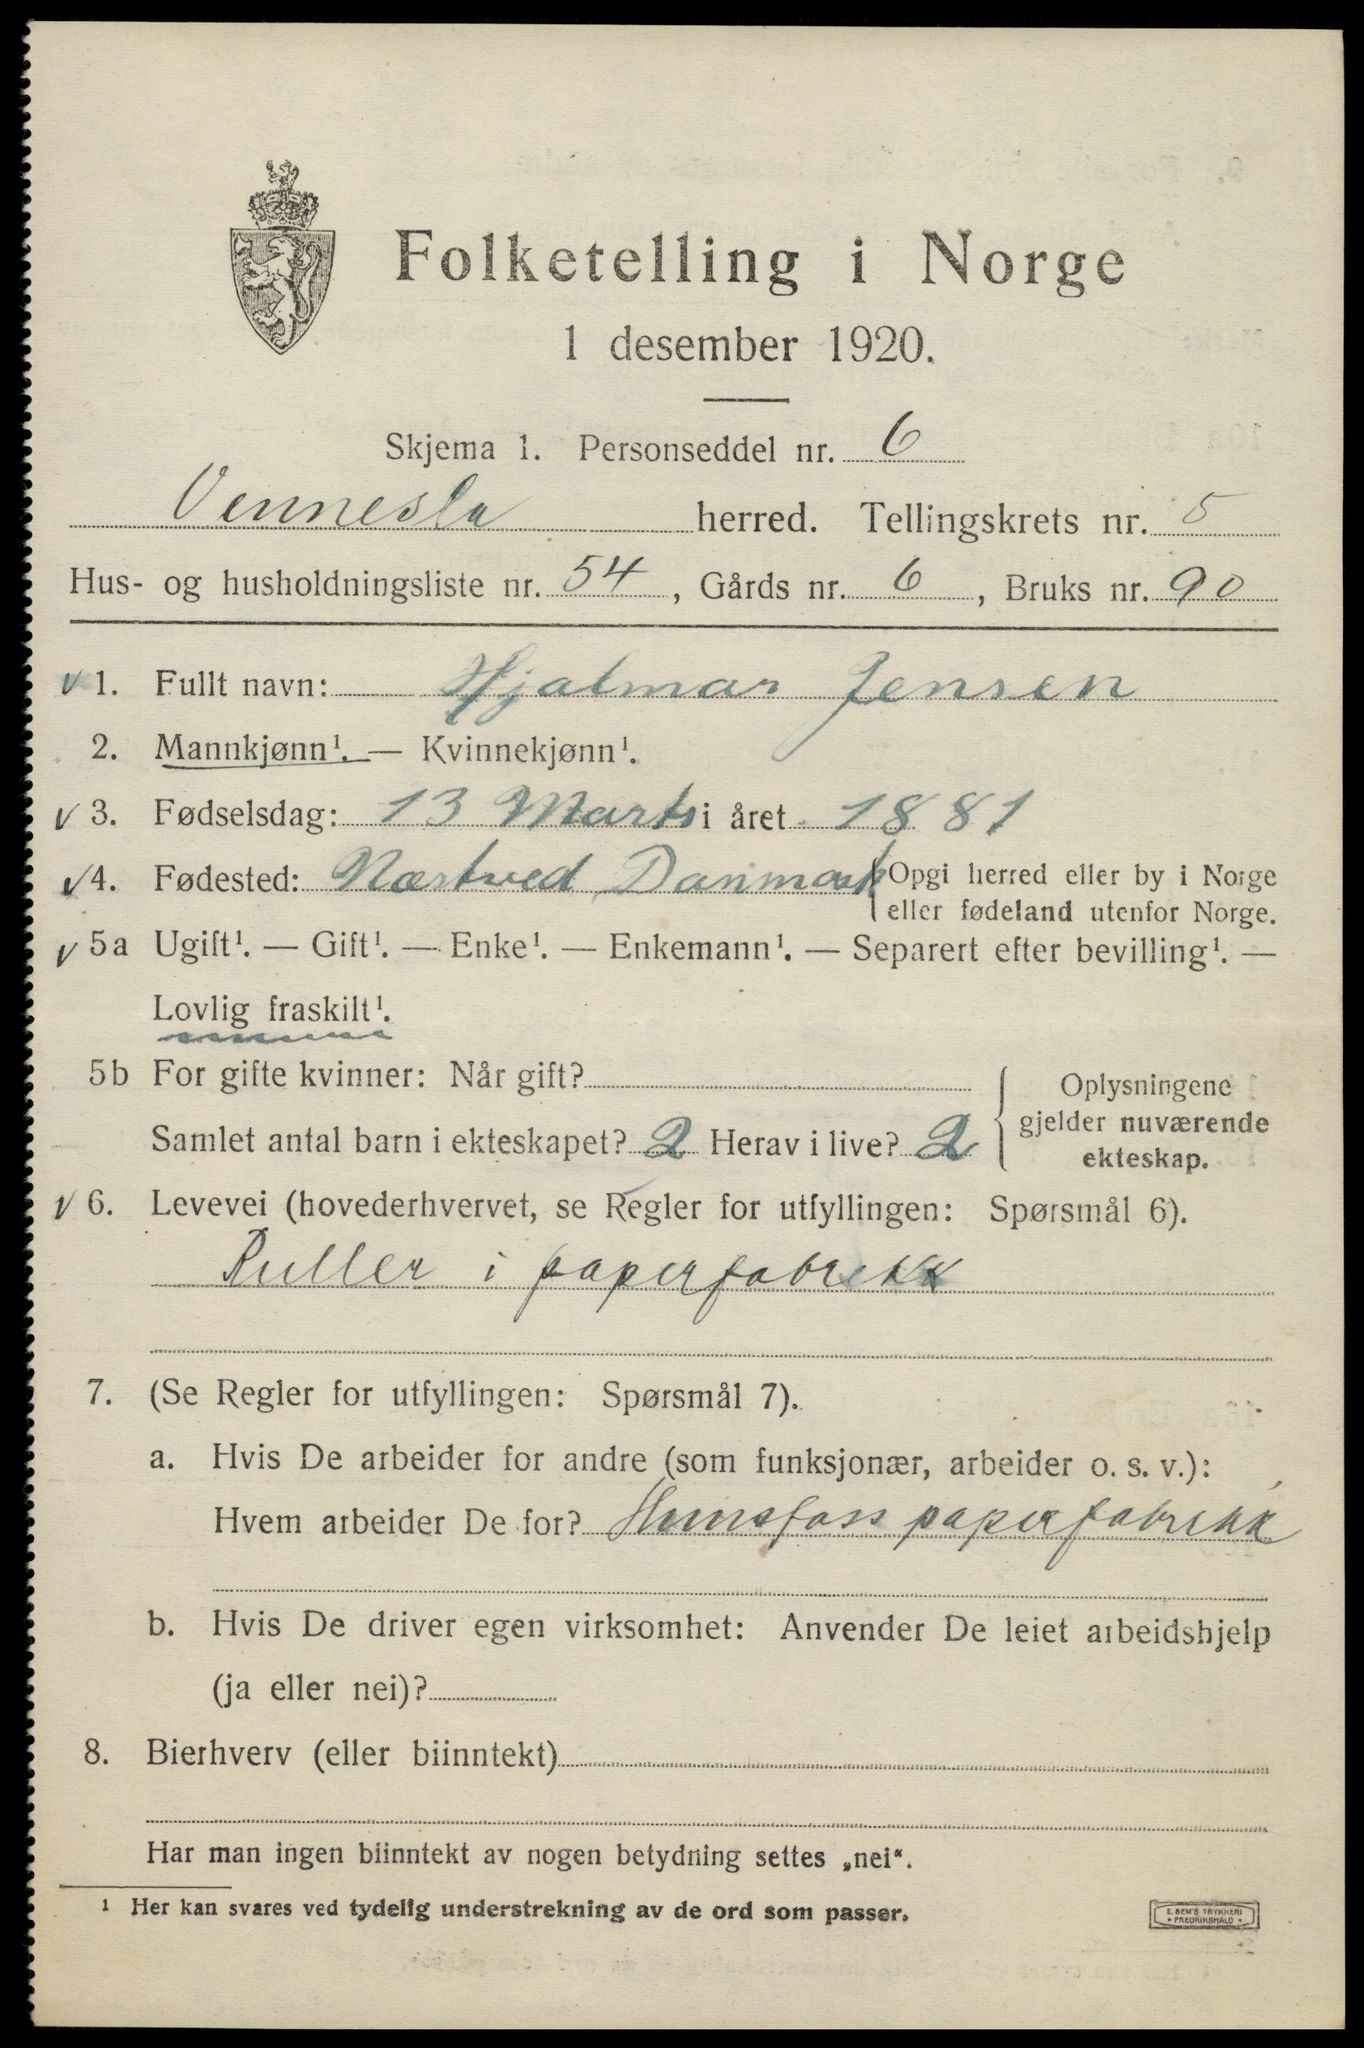 Folketelling i Norge
1 desember 1920.
Skjema 1. Personseddel nr. 6
Vennesla herred. Tellingskrets nr. 5
Hus- og husholdningsliste nr. 54, Gårds nr. 6, Bruks nr. 90
1. Fullt navn: Hjalmar Jensen
2. Mannkjønn¹. — Kvinnekjønn¹.
3. Fødselsdag: 13 Marts i året 1881
4. Fødested: Næstved Danmark Opgi herred eller by i Norge
eller fødeland utenfor Norge.
5a Ugift¹. — Gift¹. — Enke¹. — Enkemann¹. — Separert efter bevilling¹. —
Lovlig fraskilt¹.
5b For gifte kvinner: Når gift?
Samlet antal barn i ekteskapet? 2 Herav i live? 2
Oplysningene
gjelder nuværende
ekteskap.
6. Levevei (hovederhvervet, se Regler for utfyllingen: Spørsmål 6).
Ruller i paperfabrikk
7. (Se Regler for utfyllingen: Spørsmål 7).
a. Hvis De arbeider for andre (som funksjonær, arbeider o. s. v.):
Hvem arbeider De for? Hunsfoss paperfabrikk
b. Hvis De driver egen virksomhet: Anvender De leiet arbeidshjelp
(ja eller nei)?
8. Bierhverv (eller biinntekt)
Har man ingen biinntekt av nogen betydning settes „nei“.
¹ Her kan svares ved tydelig understrekning av de ord som passer.
E. SEM'S TRYKKERI
* FREDRIKSHALD *